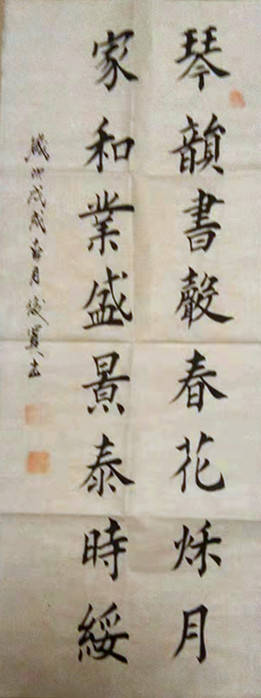 琴韻書聲春花秌月
家和業盛景泰時綏
歲次戊戌春月